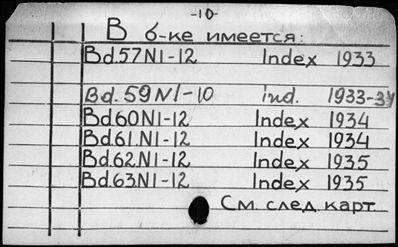 -10-
В б-ке имеется:
Bd.57N1-12 Index 1933
Bd.59N1-10 ind. 1933-34
Bd.60N1-12 Index 1934
Bd.61.N1-12 Index 1934
Bd.62.N1-12 Index 1935
Bd.63.N1-12 Index 1935
См. след. карт.